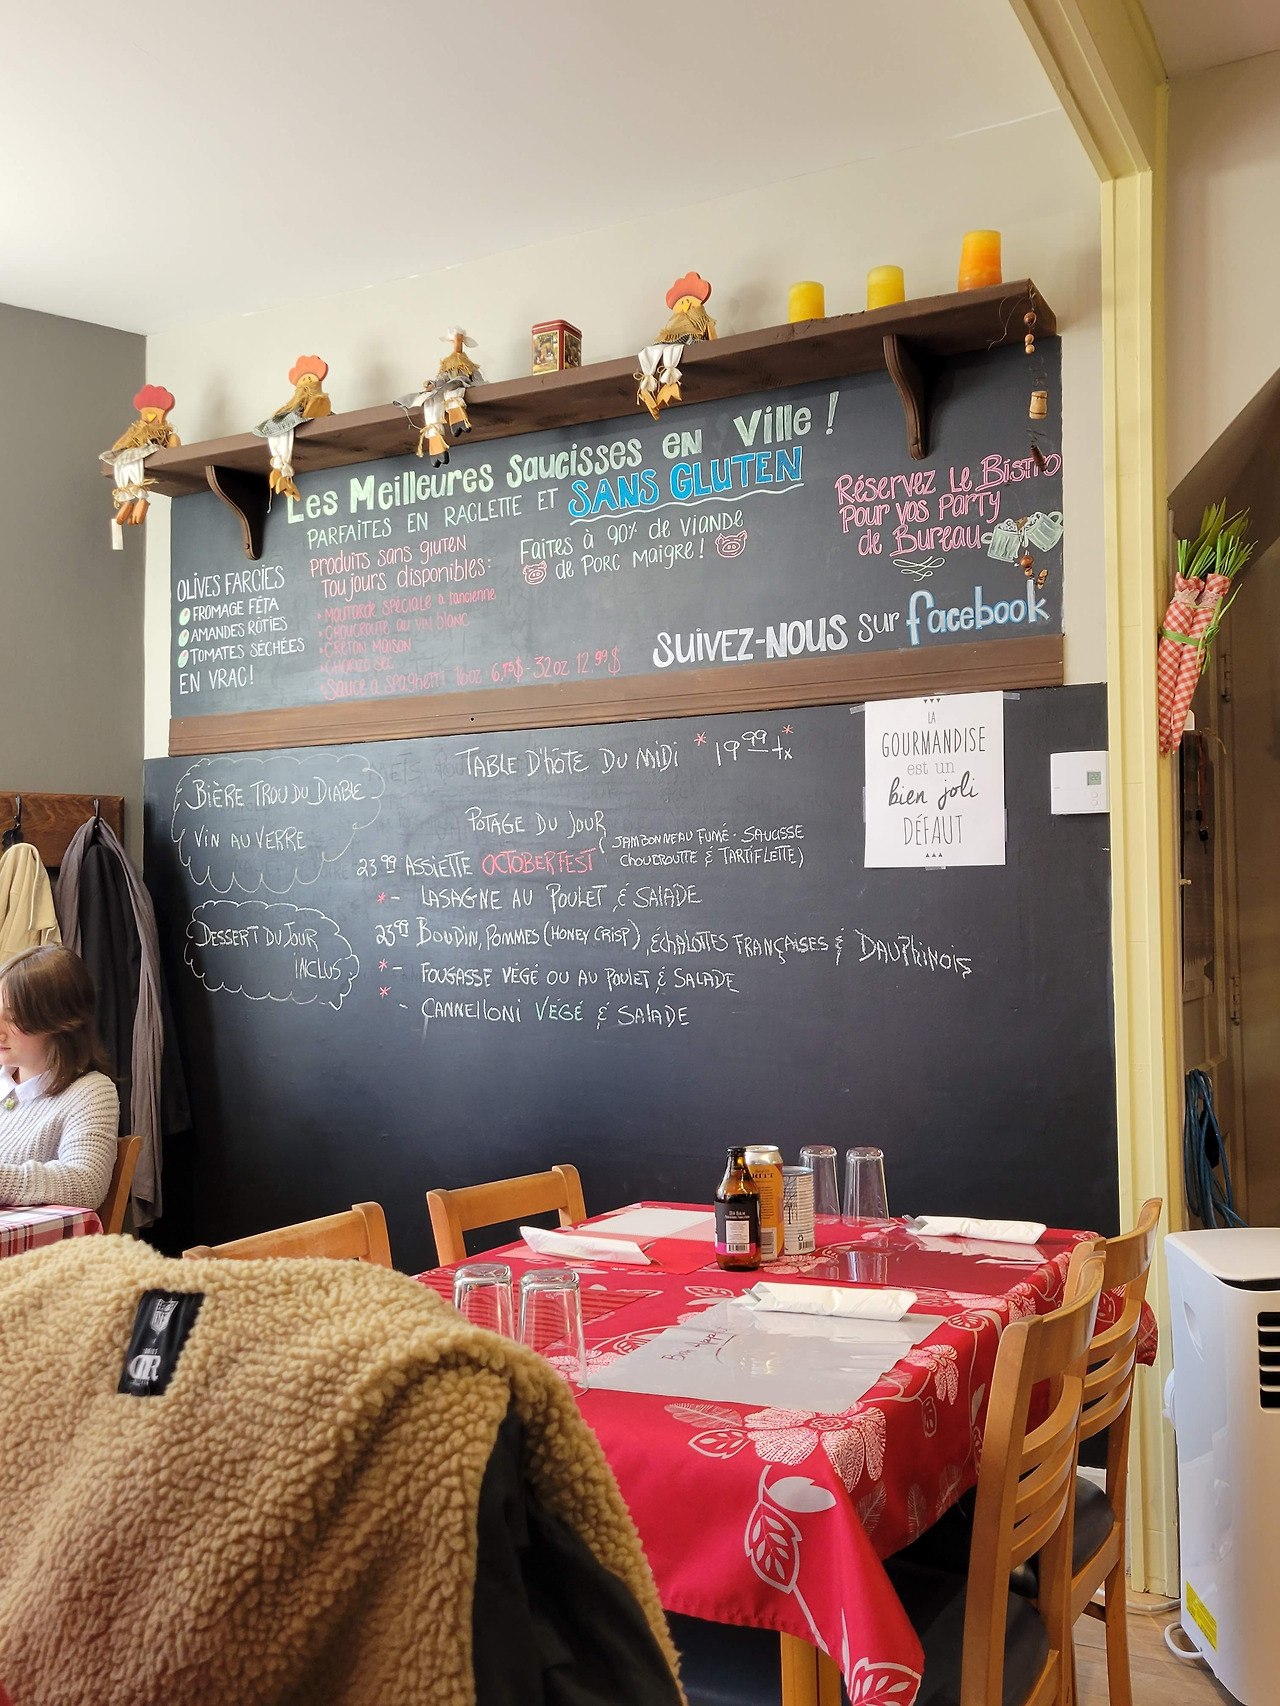 Les Meilleures Saucisses en Ville !
PARFAITES EN RACLETTE ET SANS GLUTEN
Produits sans gluten
Toujours disponibles:
• Moutarde spéciale à l'ancienne
• Choucroute au vin blanc
• Creton maison
• Chorizo sec
• Sauce à spaghetti 16oz 6,75$ - 32oz 12.99$
Faites à 90% de viande
de Porc maigre !
Réservez le Bistro
Pour vos Party
de Bureau
OLIVES FARCIES
FROMAGE FÉTA
AMANDES RÔTIES
TOMATES SÉCHÉES
EN VRAC!
SUIVEZ-NOUS sur facebook
BIÈRE TROU DU DIABLE
VIN AU VERRE
DESSERT DU JOUR
INCLUS
TABLE D'HÔTE DU MIDI * 19 99 + tx *
POTAGE DU JOUR
23 99 ASSIETTE OCTOBERFEST
( JAMBONNEAU FUMÉ - SAUCISSE
CHOUCROUTTE & TARTIFLETTE)
* - LASAGNE AU POULET & SALADE
23 99 BOUDIN, POMMES (HONEY CRISP), ÉCHALOTTES FRANÇAISES & DAUPHINOIS
* - FOUGASSE VÉGÉ OU AU POULET & SALADE
* - CANNELLONI VÉGÉ & SALADE
LA
GOURMANDISE
est un
bien joli
DÉFAUT